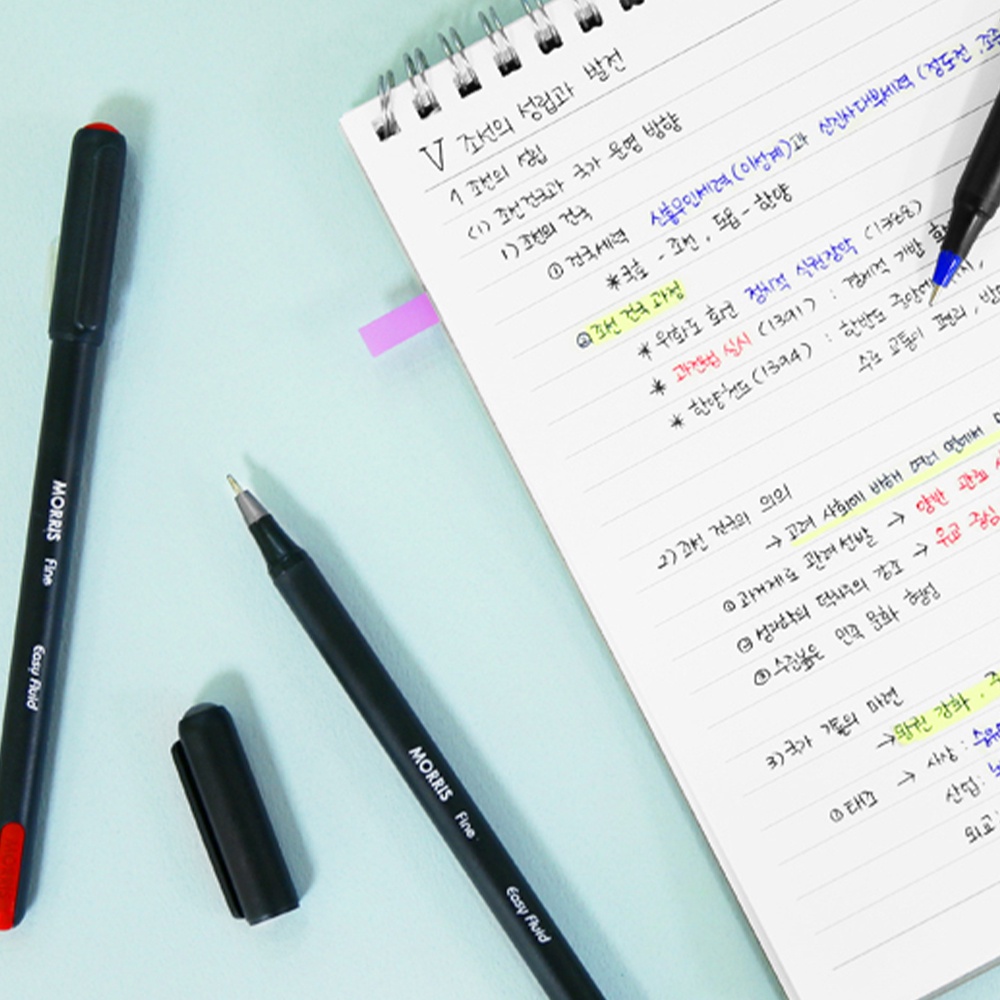 V 조선의 성립과 발전
1 조선의 성립
(1) 조선건국과 국가 운영 방향
1) 조선의 건국
① 건국세력 신흥무인세력(이성계)과 신진사대부세력 (정도전, 조준
*국호 - 조선, 도읍 - 한양
② 조선 건국 과정
* 위화도 회군 정치적 실권장악 (1388)
* 과전법 실시 (1391) : 경제적 기반
* 한양천도 (1394) : 한반도 중앙에
수로 교통이 편리,
2) 조선 건국의 의의
→ 고려 사회에 비해 여러 면에서
① 과거제로 관리선발 → 양반 관료
② 성리학의 덕치주의 강조 → 유교 중심
③ 수준높은 민족 문화 형성
3) 국가 기틀의 마련
→ 왕권 강화,
① 태조 → 사상 :
산업 :
외교
MORRIS Fine Easy Fluid
MORRIS Fine Easy Fluid